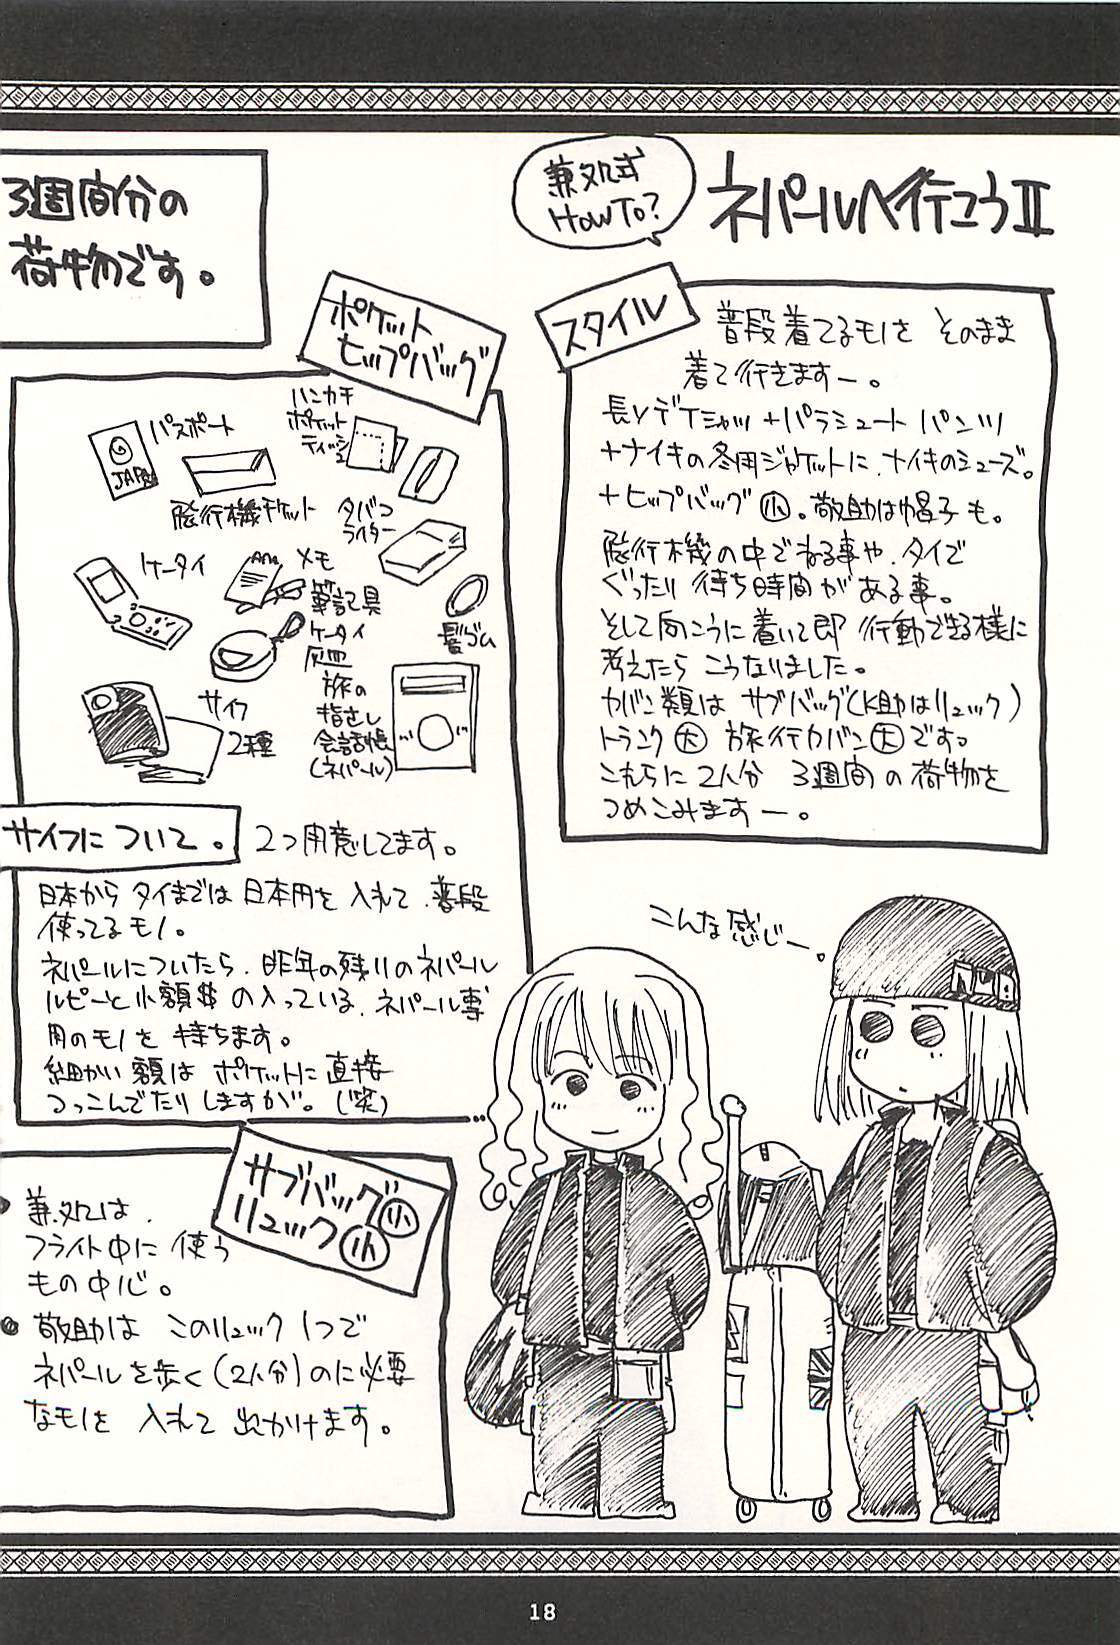 兼処式
HOWTO?
ネパールへ行こうⅡ
3週間分の
荷物です。
スタイル
普段着てるモノを そのまま
着て行きますー。
長Yデイシャツ+パラシュートパンツ
+ナイキの冬用ジャケットに、ナイキのシューズ。
+ヒップバッグ小。敬助は帽子も。
飛行機の中でねる事や、タイで
ぐったり待ち時間がある事。
そして向こうに着いて即 行動できる様に
考えたら こうなりました。
カバン類は サブバッグ(K助はリュック)
トランク大 旅行カバン大です。
これらに2人分 3週間の荷物を
つめこみますー。
ポケット
ヒップバッグ
パスポート
JAPA
ハンカチ
ポケット
ティッシュ
飛行機チケット
タバコ
ライター
ケータイ
メモ
筆記具
ケータイ
灰皿
髪ゴム
サイフ
2種
旅の
指さし
会話帳
(ネパール)
サイフについて。
2つ用意してます。
日本から タイまでは 日本円を 入れて、普段
使ってるモノ。
ネパールについたら、昨年の残りのネパール
ルピーと小額$の入っている、ネパール専
用のモノを 持ちます。
細かい額は ポケットに直接
つっこんでたりしますが。(笑)
サブバッグ小
リュック小
兼処は、
フライト中に 使う
もの中心。
敬助は このリュック1つで
ネパールを歩く(2人分)のに必要
なモノを 入れて 出かけます。
こんな感じー。
18